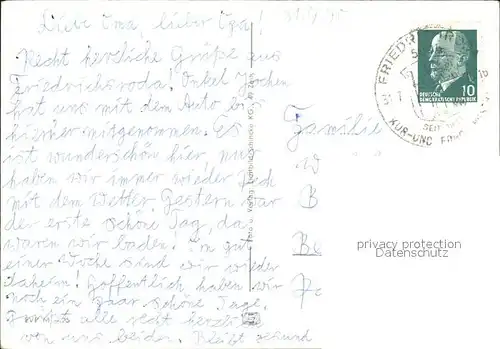 Liebe Oma, lieber Opa!
Recht herzliche Grüße aus
Friedrichsroda! Onkel Jochen
hat uns mit dem Auto bis
hierher mitgenommen. Es
ist wunderschön hier, nur
haben wir immer wieder Pech
mit dem Wetter. Gestern war
der erste schöne Tag, da
waren wir baden! In gut
einer Woche sind wir wieder
daheim! Hoffentlich haben wir
noch ein paar schöne Tage.
alle recht herzlich
von uns beiden. Bleibt gesund
Familie
W
B
Be
privacy protection
Datenschutz
FRIEDR
KUR-UND
DEUTSCHE
DEMOKRATISCHE REPUBLIK
10